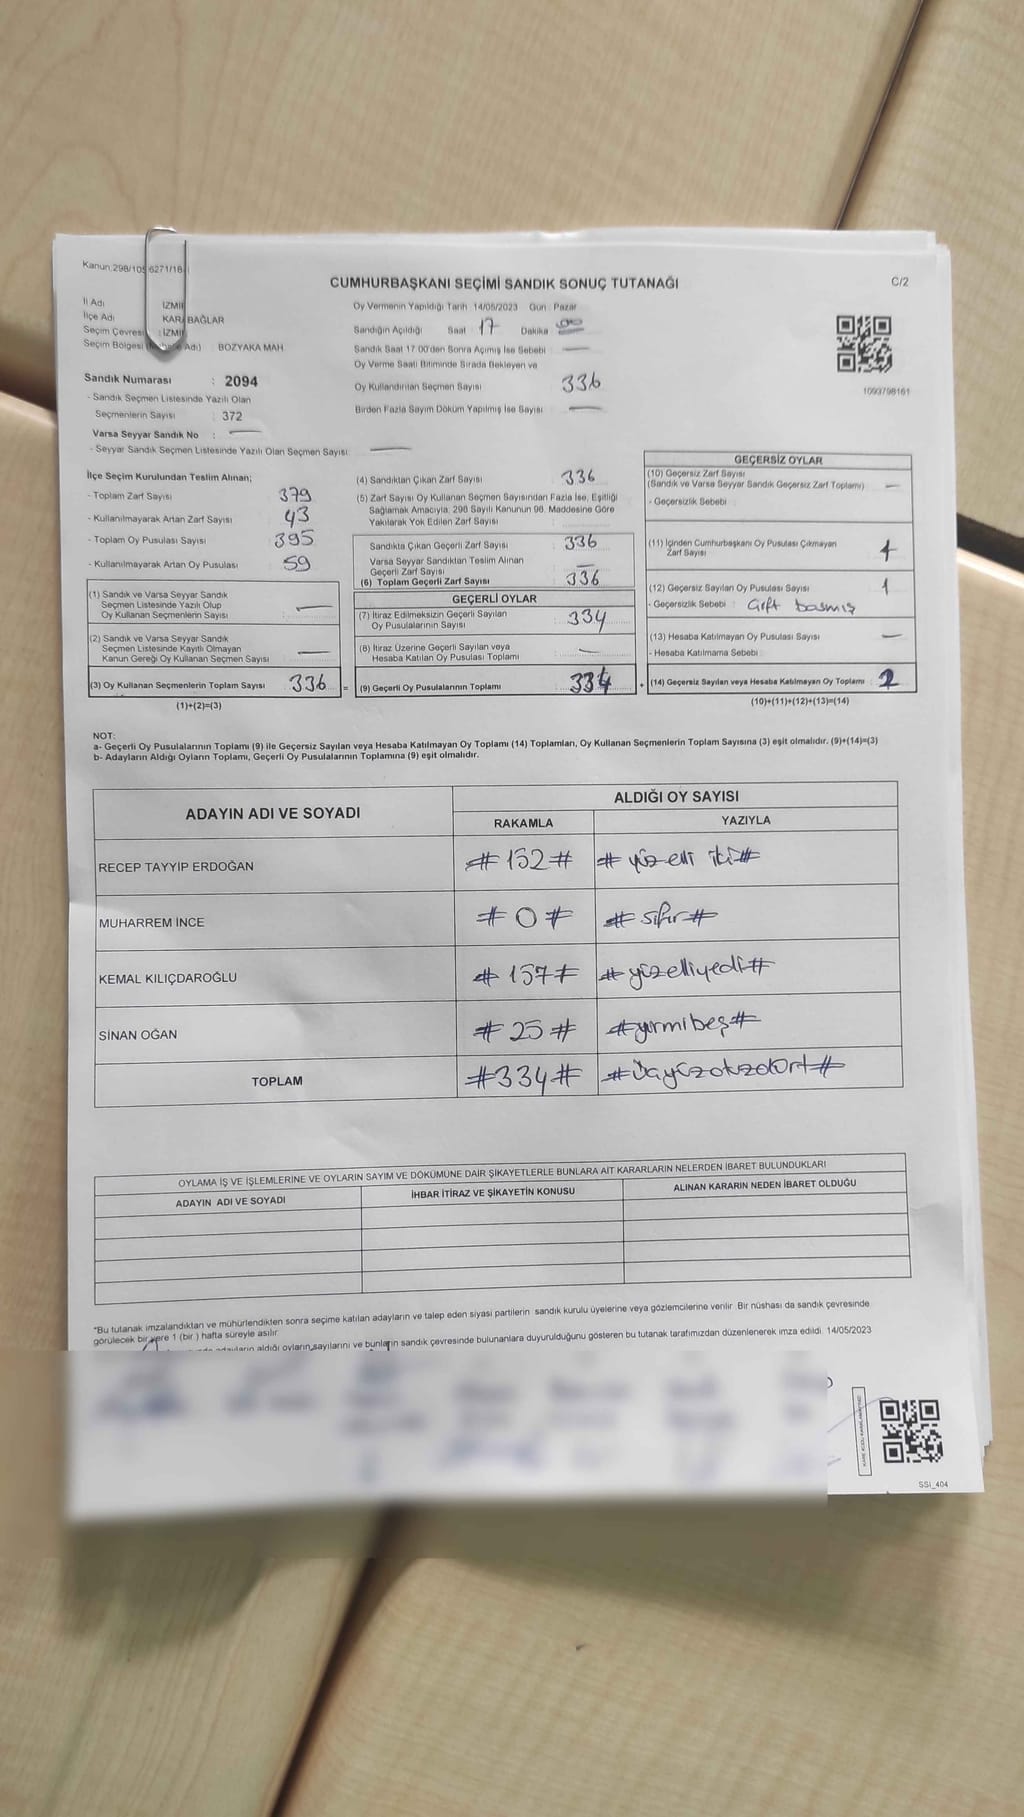 Kanun.298/105 6271/18
CUMHURBAŞKANI SEÇİMİ SANDIK SONUÇ TUTANAĞI
C/2
İl Adı İZMİ
İlçe Adı KARABAĞLAR
Seçim Çevresi : İZMİ
Seçim Bölgesi ( Adı) : BOZYAKA MAH
Sandık Numarası : 2094
- Sandık Seçmen Listesinde Yazılı Olan
Seçmenlerin Sayısı : 372
Varsa Seyyar Sandık No : —
- Seyyar Sandık Seçmen Listesinde Yazılı Olan Seçmen Sayısı: —
Oy Vermenin Yapıldığı Tarih 14/05/2023 Gün : Pazar
Sandığın Açıldığı Saat 17 Dakika 00
Sandık Saat 17:00'den Sonra Açımış İse Sebebi : —
Oy Verme Saati Bitiminde Sırada Bekleyen ve
Oy Kullandırılan Seçmen Sayısı 336
Birden Fazla Sayım Döküm Yapılmış İse Sayısı : —
1093798161
İlçe Seçim Kurulundan Teslim Alınan;
- Toplam Zarf Sayısı 379
- Kullanılmayarak Artan Zarf Sayısı : 43
- Toplam Oy Pusulası Sayısı : 395
- Kullanılmayarak Artan Oy Pusulası : 59
(1) Sandık ve Varsa Seyyar Sandık
Seçmen Listesinde Yazılı Olup
Oy Kullanan Seçmenlerin Sayısı : —
(2) Sandık ve Varsa Seyyar Sandık
Seçmen Listesinde Kayıtlı Olmayan
Kanun Gereği Oy Kullanan Seçmen Sayısı : —
(3) Oy Kullanan Seçmenlerin Toplam Sayısı : 336 =
(1)+(2)=(3)
(4) Sandıktan Çıkan Zarf Sayısı : 336
(5) Zarf Sayısı Oy Kullanan Seçmen Sayısından Fazla İse, Eşitliği
Sağlamak Amacıyla, 298 Sayılı Kanunun 98. Maddesine Göre
Yakılarak Yok Edilen Zarf Sayısı :
Sandıkta Çıkan Geçerli Zarf Sayısı : 336
Varsa Seyyar Sandıktan Teslim Alınan
Geçerli Zarf Sayısı : —
(6) Toplam Geçerli Zarf Sayısı : 336
GEÇERLİ OYLAR
(7) İtiraz Edilmeksizin Geçerli Sayılan
Oy Pusulalarının Sayısı : 334
(8) İtiraz Üzerine Geçerli Sayılan veya
Hesaba Katılan Oy Pusulası Toplamı : —
(9) Geçerli Oy Pusulalarının Toplamı : 334 +
GEÇERSİZ OYLAR
(10) Geçersiz Zarf Sayısı
(Sandık ve Varsa Seyyar Sandık Geçersiz Zarf Toplamı) : —
- Geçersizlik Sebebi :
(11) İçinden Cumhurbaşkanı Oy Pusulası Çıkmayan
Zarf Sayısı : 1
(12) Geçersiz Sayılan Oy Pusulası Sayısı : 1
- Geçersizlik Sebebi : Çift basmış
(13) Hesaba Katılmayan Oy Pusulası Sayısı : —
- Hesaba Katılmama Sebebi :
(14) Geçersiz Sayılan veya Hesaba Katılmayan Oy Toplamı : 2
(10)+(11)+(12)+(13)=(14)
NOT:
a- Geçerli Oy Pusulalarının Toplamı (9) ile Geçersiz Sayılan veya Hesaba Katılmayan Oy Toplamı (14) Toplamları, Oy Kullanan Seçmenlerin Toplam Sayısına (3) eşit olmalıdır. (9)+(14)=(3)
b- Adayların Aldığı Oyların Toplamı, Geçerli Oy Pusulalarının Toplamına (9) eşit olmalıdır.
ADAYIN ADI VE SOYADI ALDIĞI OY SAYISI
RAKAMLA YAZIYLA
RECEP TAYYİP ERDOĞAN #152# #yüzelli iki#
MUHARREM İNCE #0# #sıfır#
KEMAL KILIÇDAROĞLU #157# #yüzelliyedi#
SİNAN OĞAN #25# #yirmibeş#
TOPLAM #334# #üçyüzotuzdört#
OYLAMA İŞ VE İŞLEMLERİNE VE OYLARIN SAYIM VE DÖKÜMÜNE DAİR ŞİKAYETLERLE BUNLARA AİT KARARLARIN NELERDEN İBARET BULUNDUKLARI
ADAYIN ADI VE SOYADI İHBAR İTİRAZ VE ŞİKAYETİN KONUSU ALINAN KARARIN NEDEN İBARET OLDUĞU
"Bu tutanak imzalandıktan ve mühürlendikten sonra seçime katılan adayların ve talep eden siyasi partilerin sandık kurulu üyelerine veya gözlemcilerine verilir. Bir nüshası da sandık çevresinde
görülecek bir yere 1 (bir ) hafta süreyle asılır.
adayların aldığı oyların sayılarını ve bunların sandık çevresinde bulunanlara duyurulduğunu gösteren bu tutanak tarafımızdan düzenlenerek imza edildi. 14/05/2023
SSİ_404